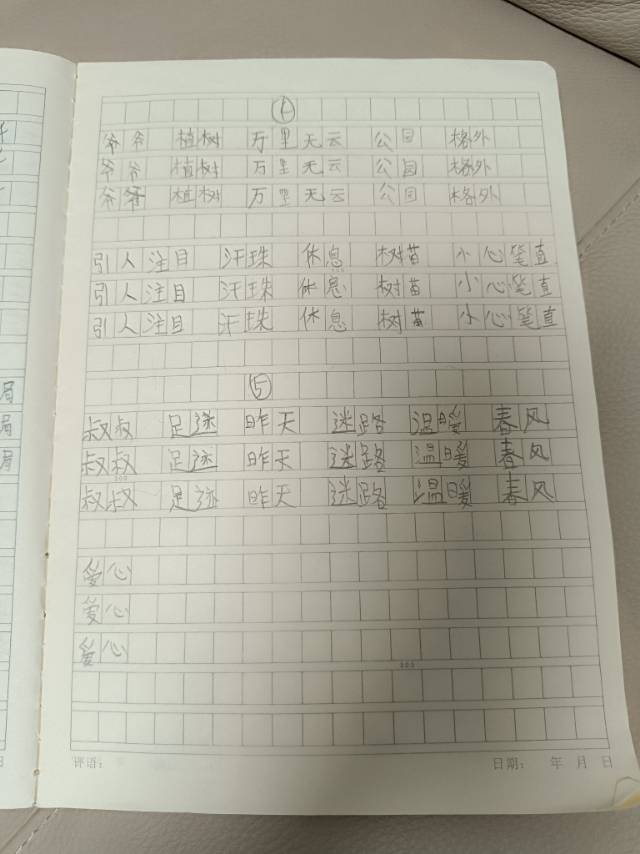 ④
爷爷 植树 万里无云 公园 格外
爷爷 植树 万里无云 公园 格外
爷爷 植树 万里无云 公园 格外
引人注目 汗珠 休息 树苗 小心 笔直
引人注目 汗珠 休息 树苗 小心 笔直
引人注目 汗珠 休息 树苗 小心 笔直
⑤
叔叔 足迹 昨天 迷路 温暖 春风
叔叔 足迹 昨天 迷路 温暖 春风
叔叔 足迹 昨天 迷路 温暖 春风
爱心
爱心
爱心
局
局
局
评语: 日期: 年 月 日